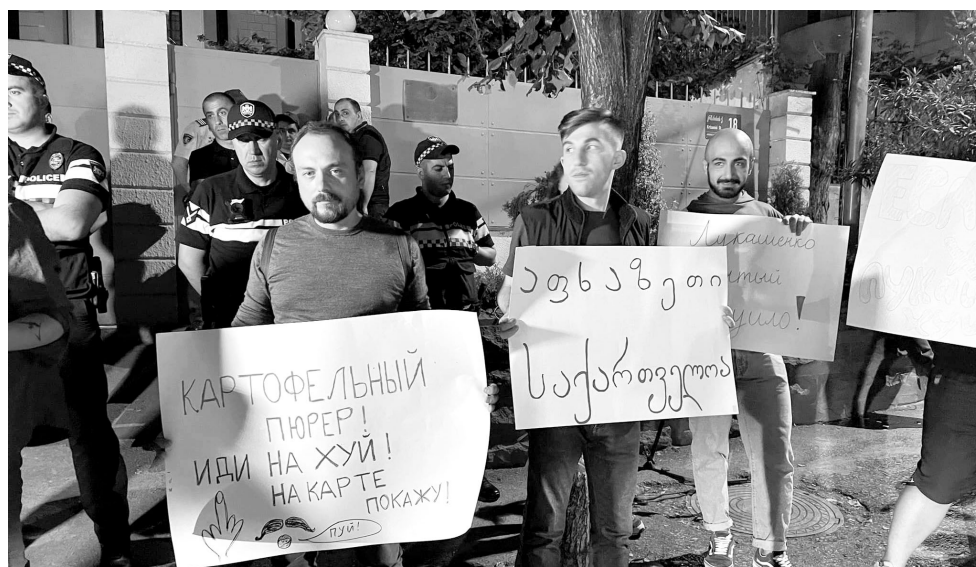 POLICE
КАРТОФЕЛЬНЫЙ
ПЮРЕР!
ИДИ НА ХУЙ!
НА КАРТЕ
ПОКАЖУ!
ПУЙ!
აფხაზეთი
საქართველოა
Лукашенко
!
18